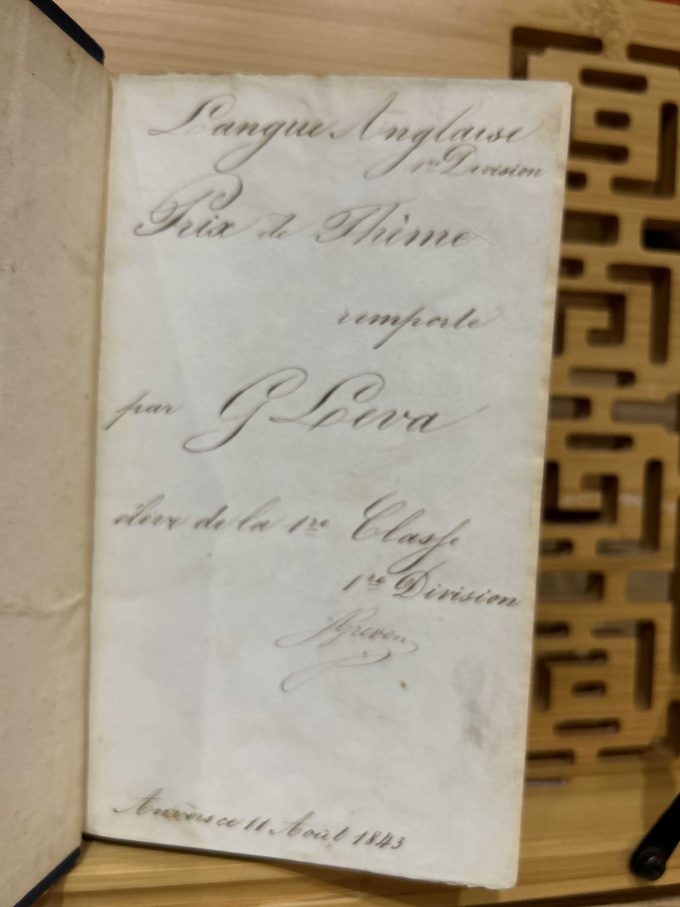 Langue Anglaise
1re Division
Prix de Thême
remporté
par G Leva
élève de la 1re Classe
1re Division
Anvers ce 11 Août 1843